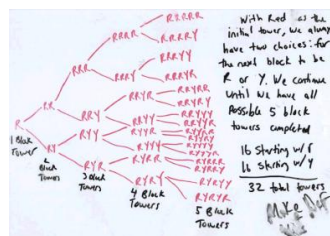 R
1 Block
Tower
RR
RY
2
Block
Towers
RRR
RRY
RYY
RYR
3 Block
Towers
RRRR
RRRY
RRYR
RRYY
RYYR
RYYY
RYRR
RYRY
4 Block
Towers
RRRRR
RRRYY
RRRYR
RRYRR
RRYRY
RRYYY
RRYYR
RYYRR
RYYRY
RYYYY
RYYYR
RYRRR
RYRRY
RYRYY
RYRYR
5 Block
Towers
With Red as the
initial tower, we always
have two choices: for
the next block to be
R or Y. We continue
until we have all
Possible 5 block
towers completed
16 Starting w/ R
16 Starting w/ Y
32 total towers